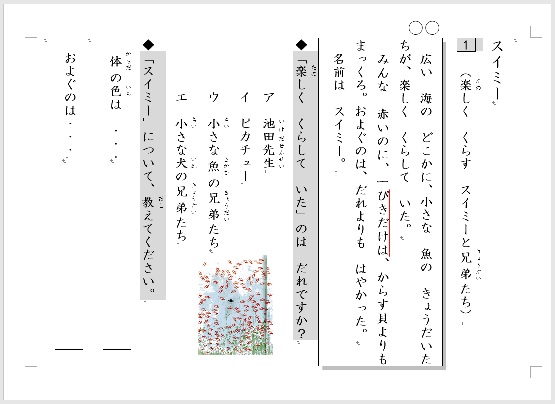 スイミー
1
（楽しく くらす スイミーと兄弟たち）
広い 海の どこかに、小さな 魚の きょうだいた
ちが、楽しく くらして いた。
みんな 赤いのに、一ぴきだけは、からす貝よりも
まっくろ。およぐのは、だれよりも はやかった。
名前は スイミー。
◆「楽しく くらして いた」のは だれですか？
ア 池田先生
イ ピカチュー
ウ 小さな魚の兄弟たち
エ 小さな犬の兄弟たち
◆「スイミー」について、教えてください。
体の色は ・・・
およぐのは・・・